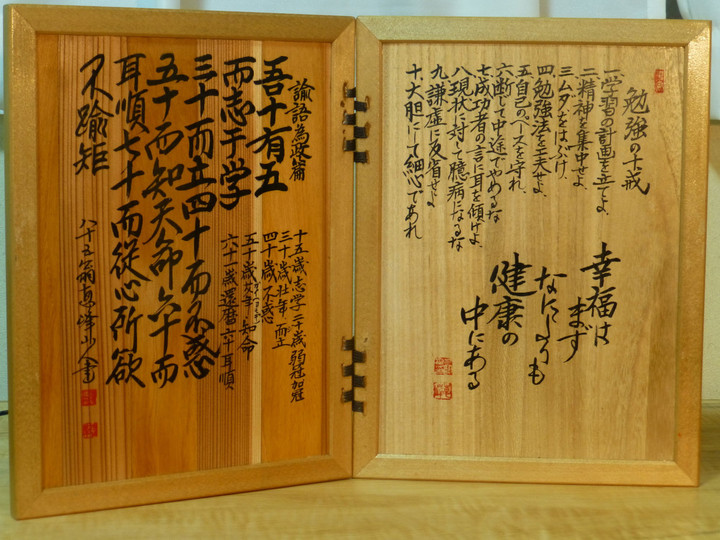 勉強の十戒
一.学習の計画を立てよ、
二.精神を集中せよ、
三.ムダをはぶけ、
四.勉強法を工夫せよ、
五.自己のペースを守れ、
六.断じて中途でやめるな
七.成功者の言に耳を傾けよ、
八.現状に対して臆病になるな
九.謙虚に反省せよ
十.大胆にして細心であれ
幸福は
まず
なによりも
健康の
中にある
論語為政篇
吾十有五
而志于学
三十而立四十而不惑
五十而知天命六十而
耳順七十而從心所欲
不踰矩
十五歳志学二十歳弱冠加冠
三十歳壮年、而立
四十歳不惑
五十歳艾年・知命
六十一歳還暦六十耳順
八十五翁恵峰山人書